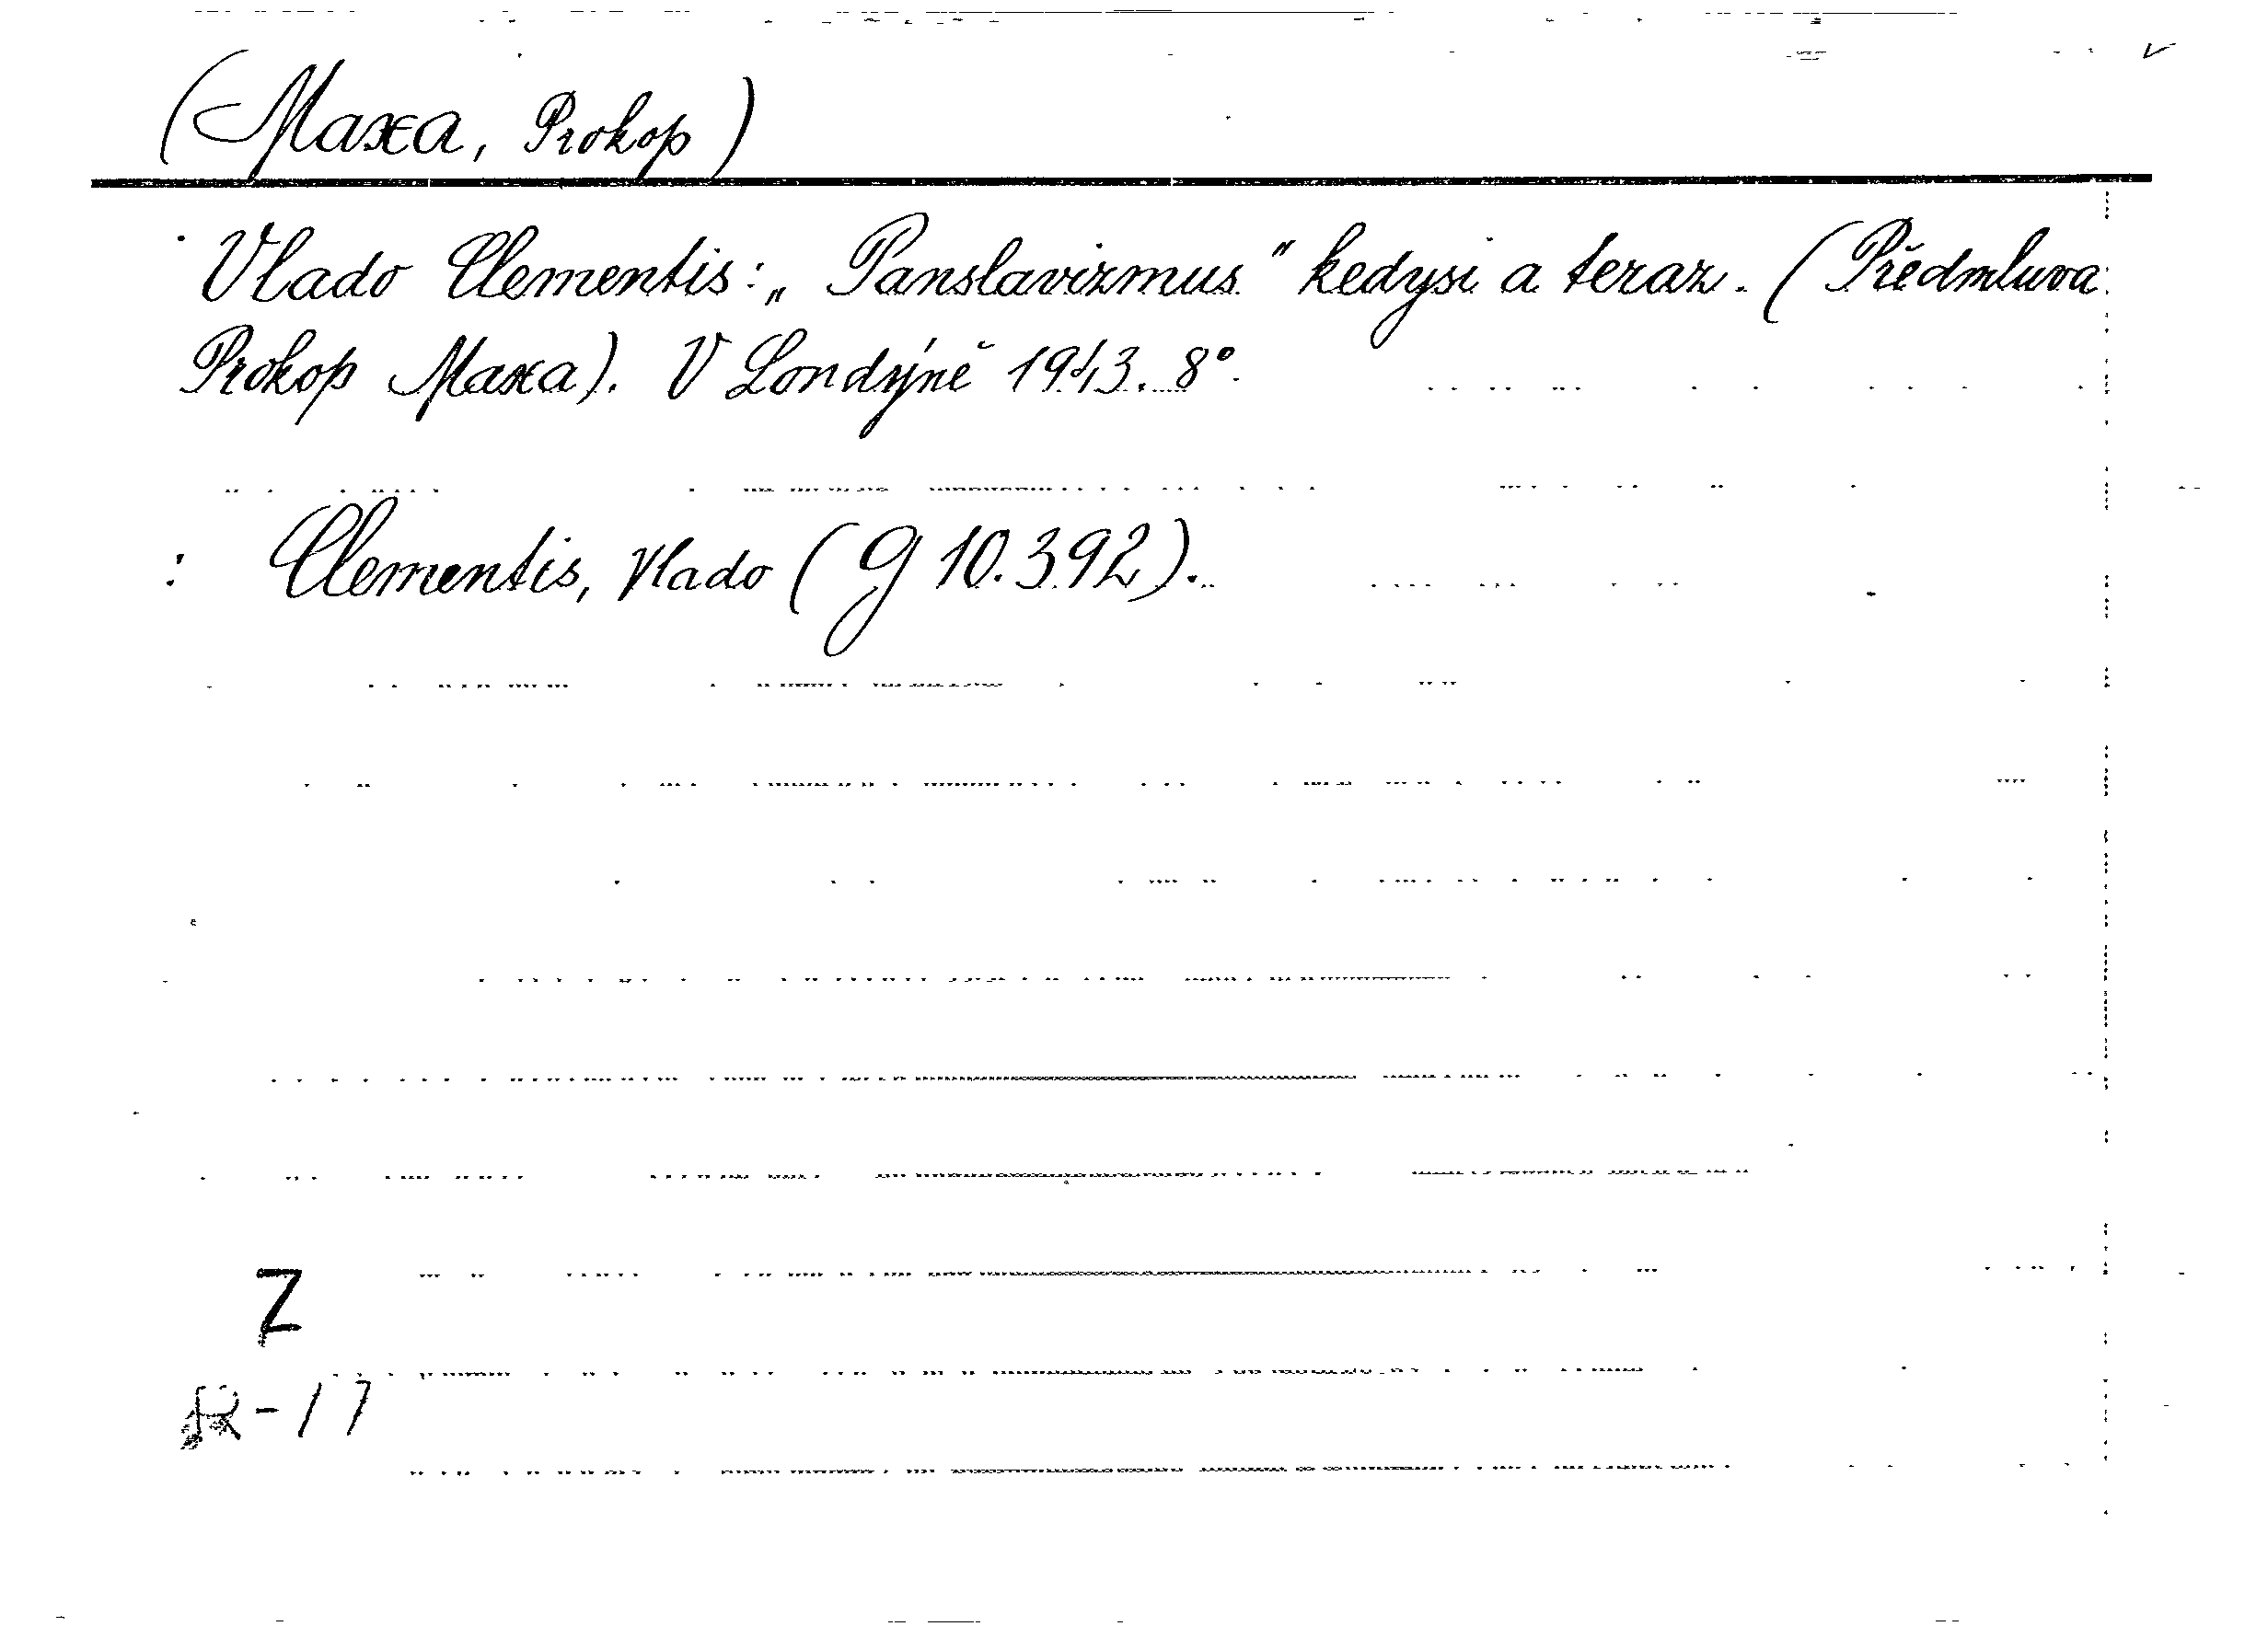 (Maxa, Prokop)
Vlado Clementis: „Panslavizmus" kedysi a teraz. (Předmluva
Prokop Maxa). V Londýně 1943. 8°.
: Clementis, Vlado (G 10.392).
Z
R-17